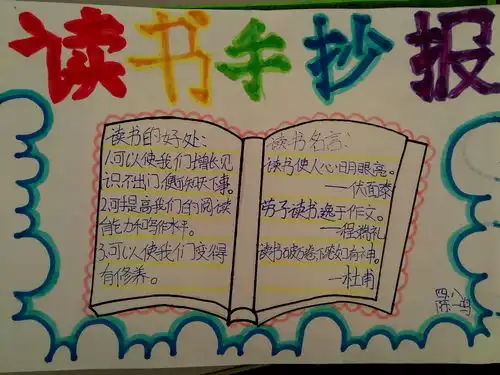 读书手抄报
读书的好处:
1.可以使我们增长见
识,不出门,便可知天下事。
2.可提高我们的阅读
能力和写作水平。
3.可以使我们变得
有修养。
读书名言:
读书使人心明眼亮。
—伏而泰
劳于读书,逸于作文。
—程端礼
读书破万卷,下笔如有神。
—杜甫
四、八
陈一鸣